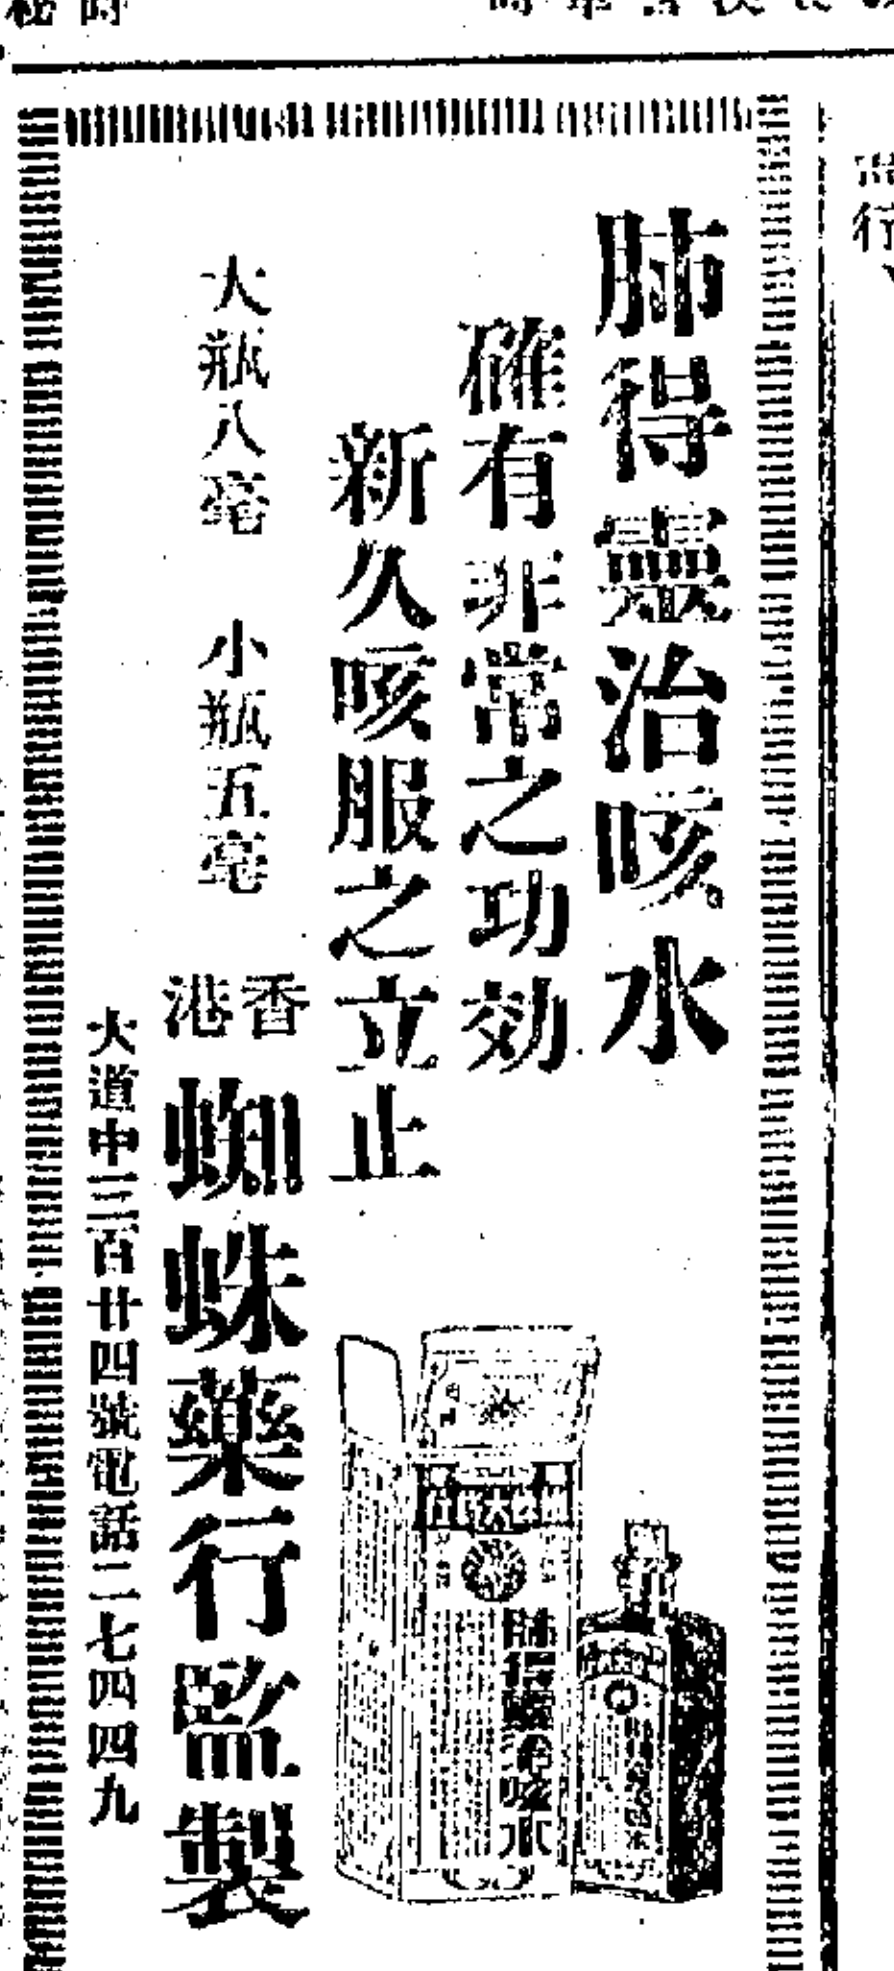 肺得靈治咳水
確有非常之功効
新久咳服之立止
大瓶八毫　小瓶五毫
香港
蜘蛛藥行監製
大道中三百廿四號電話二七四四九
肺得靈治咳水